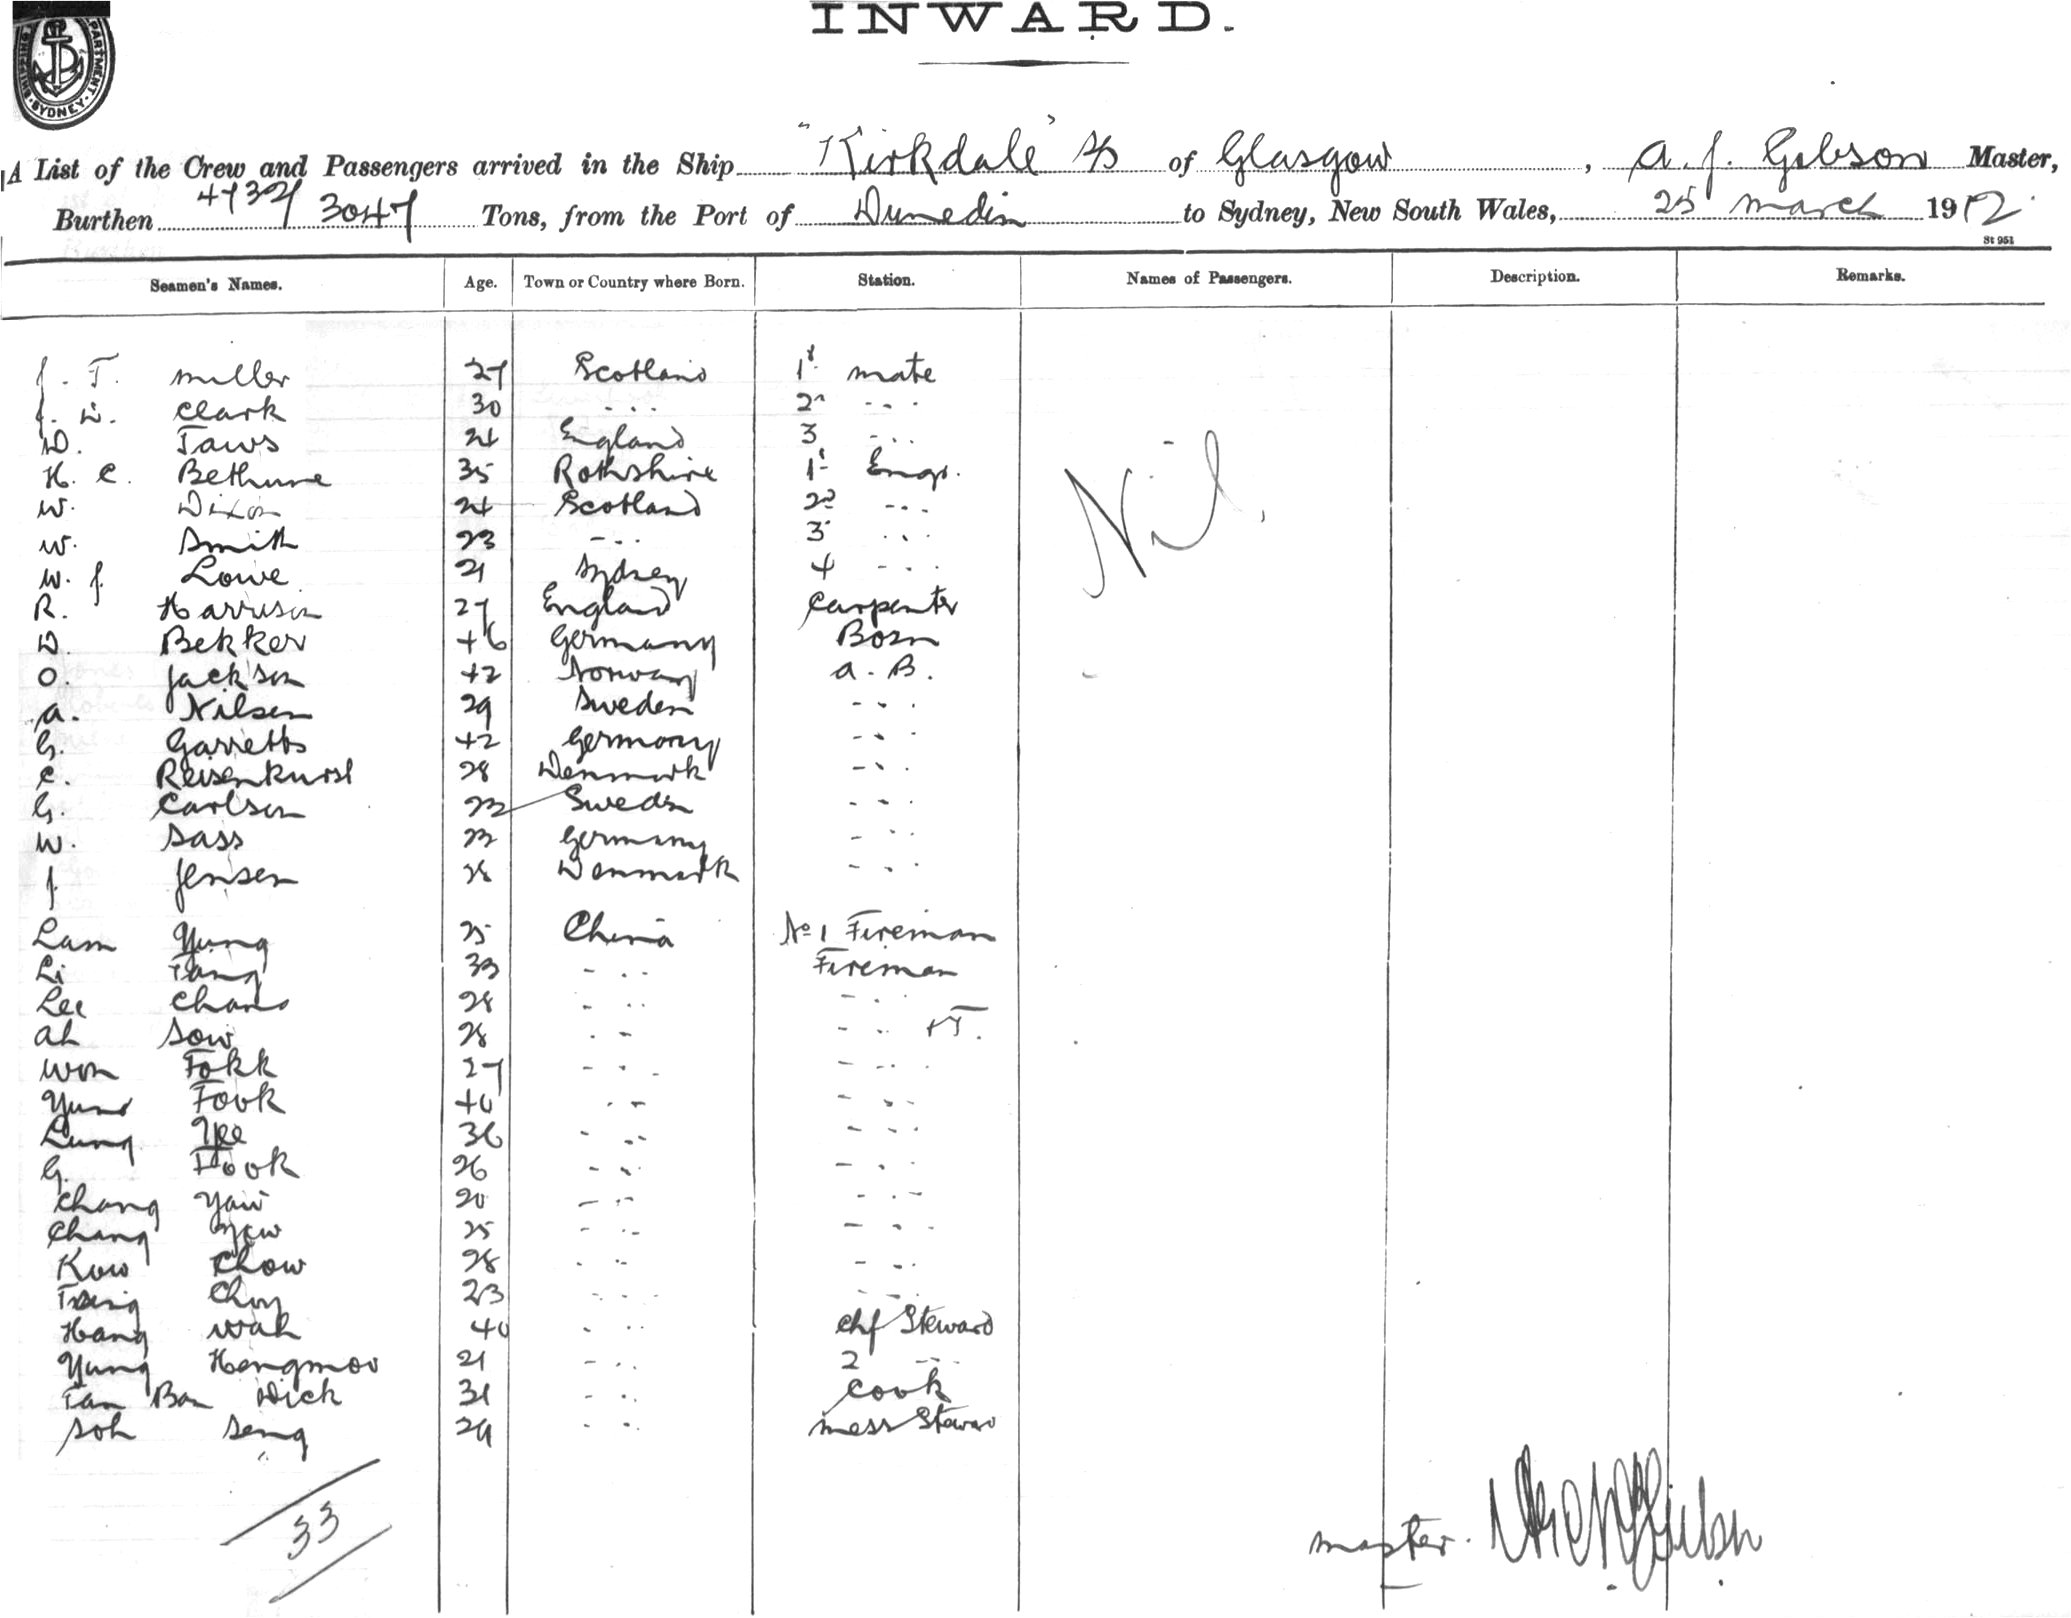 INWARD.
SHIPPING DEPARTMENT. SYDNEY.
A List of the Crew and Passengers arrived in the Ship "Kirkdale" S/S of Glasgow, A. J. Gibson Master,
Burthen 4732/3047 Tons, from the Port of Dunedin to Sydney, New South Wales, 25 March 1912.
St 951
Seamen's Names. Age. Town or Country where Born. Station. Names of Passengers. Description. Remarks.
J. T. Miller 27 Scotland 1st Mate
J. W. Clark 30 - - - 2nd - - -
D. Taws 24 England 3 - - -
H. C. Bethune 35 Rothshire 1st Engr.
W. Dixon 24 Scotland 2nd - - -
W. Smith 23 - - - 3 - - -
Nil.
W. J. Lowe 21 Sydney 4 - - -
R. Harrison 27 England Carpenter
D. Bekker 46 Germany Bosn
O. Jackson 42 Norway A. B.
A. Nilsen 29 Sweden - - -
G. Garretts 42 Germany - - -
C. Reisenkurst 28 Denmark - - -
G. Carlson 23 Sweden - - -
W. Sass 23 Germany - - -
J. Jensen 28 Denmark - - -
Lam Yung 25 China No 1 Fireman
Li Tang 33 - - - Fireman
Lee Chang 28 - - - - - -
Ah Sow 28 - - - - +T.
Won Fokk 27 - - - - - -
Yung Fook 40 - - - - -
Lung Yee 36 - - - - - -
G. Hook 26 - - - - - -
Chang Yaw 20 - - - - - -
Chang Yew 25 - - - - - -
Kow Chow 28 - - - - - -
Tsing Choy 23 - - - - - -
Hang Wah 40 - - - Chf Steward
Yung Hengmoo 21 - - - 2 - - -
Tan Ban Dick 31 - - - Cook
Soh Seng 29 - - - Mess Steward
33
Master.